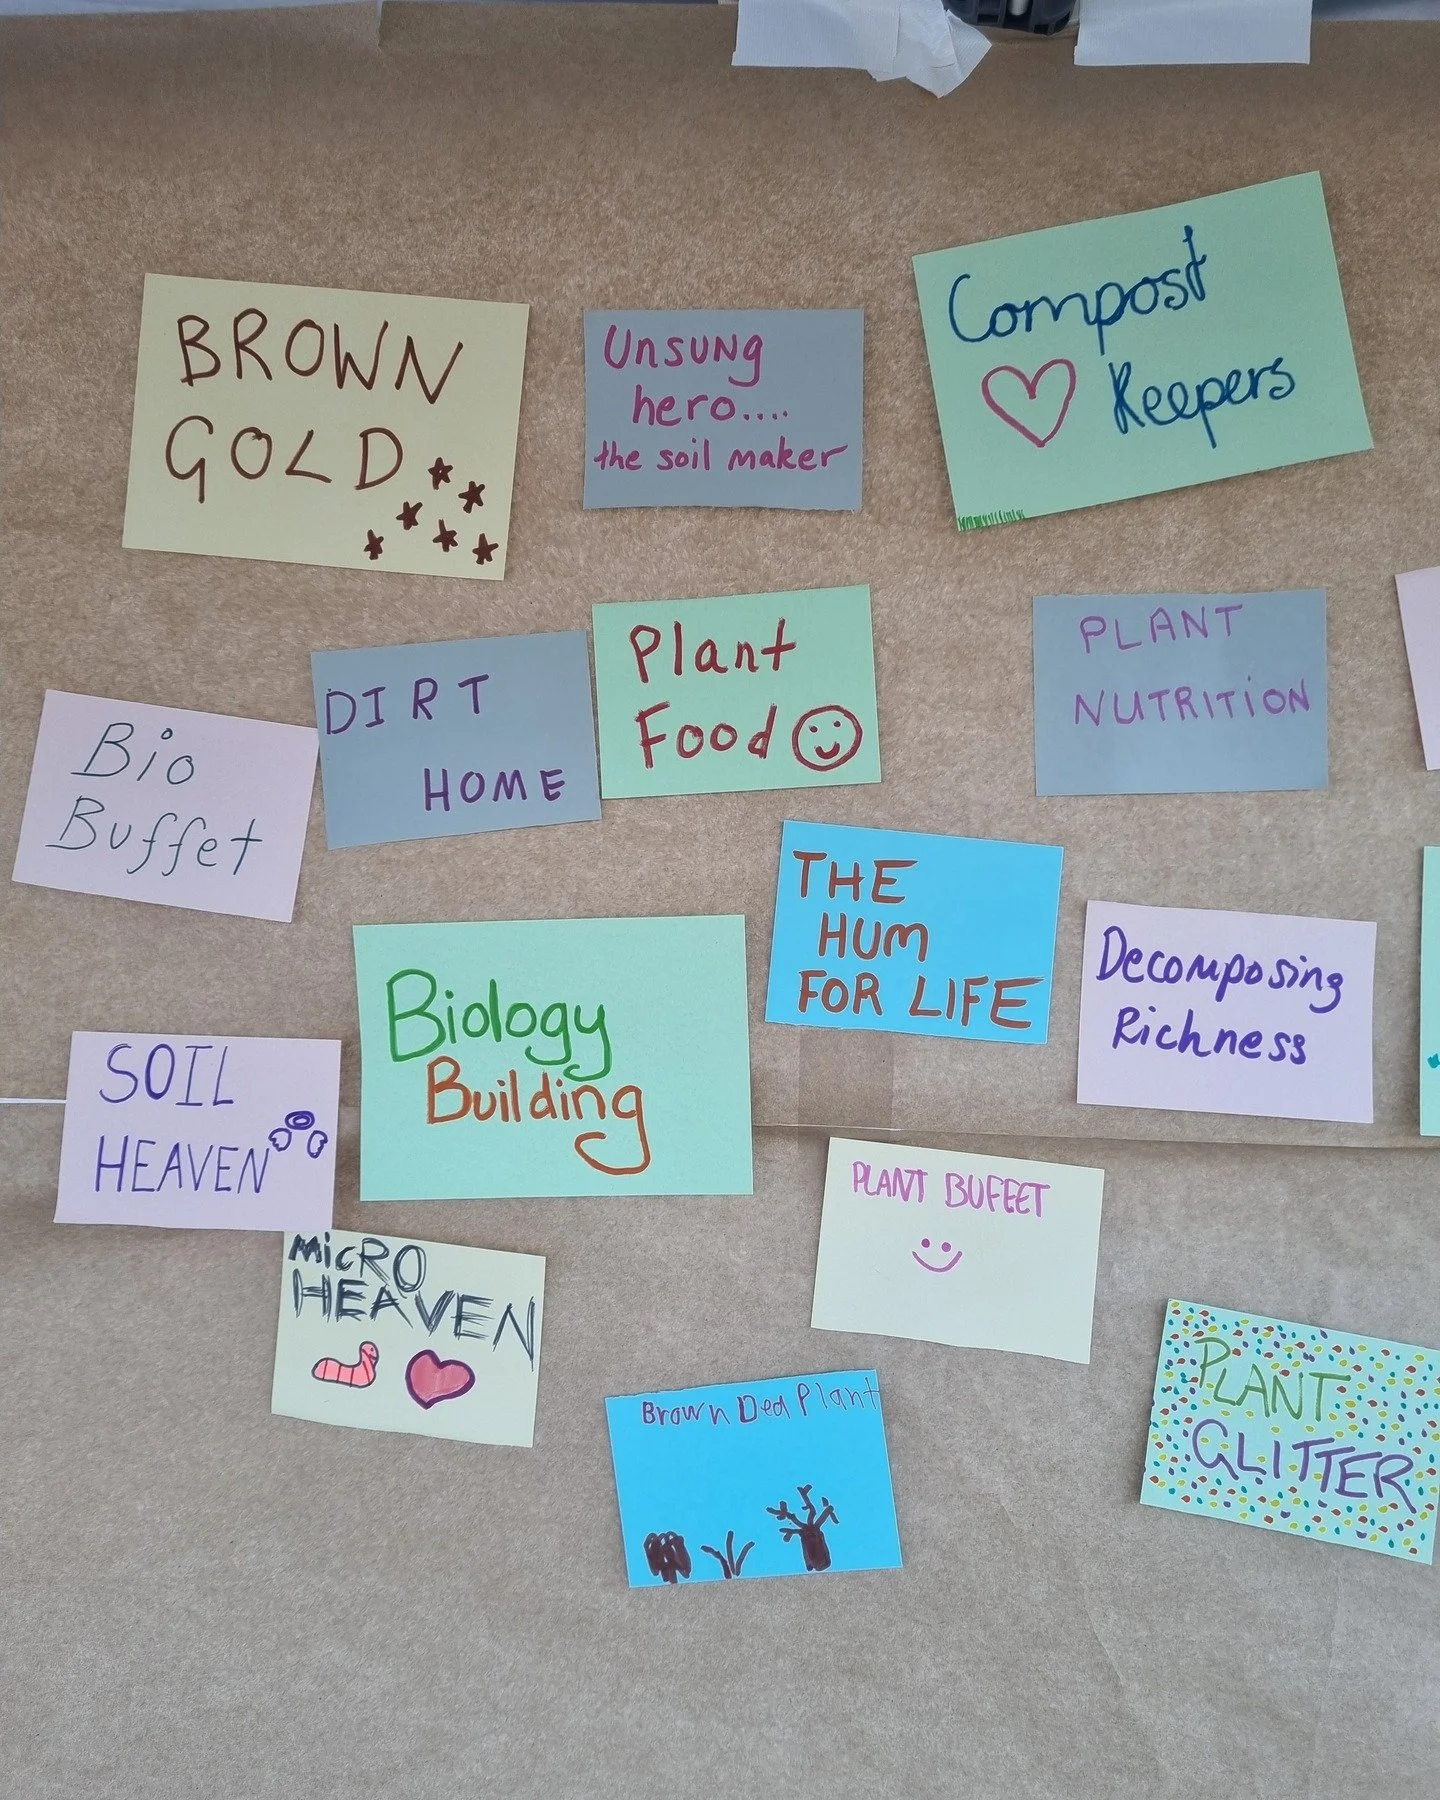 BROWN
GOLD
Unsung
hero....
the soil maker
Compost
Keepers
Bio
Buffet
DIRT
HOME
Plant
Food
PLANT
NUTRITION
THE
HUM
FOR LIFE
Decomposing
Richness
SOIL
HEAVEN
Biology
Building
MicRO
HEAVEN
PLANT BUFEET
Brown Ded Plant
PLANT
GLITTER